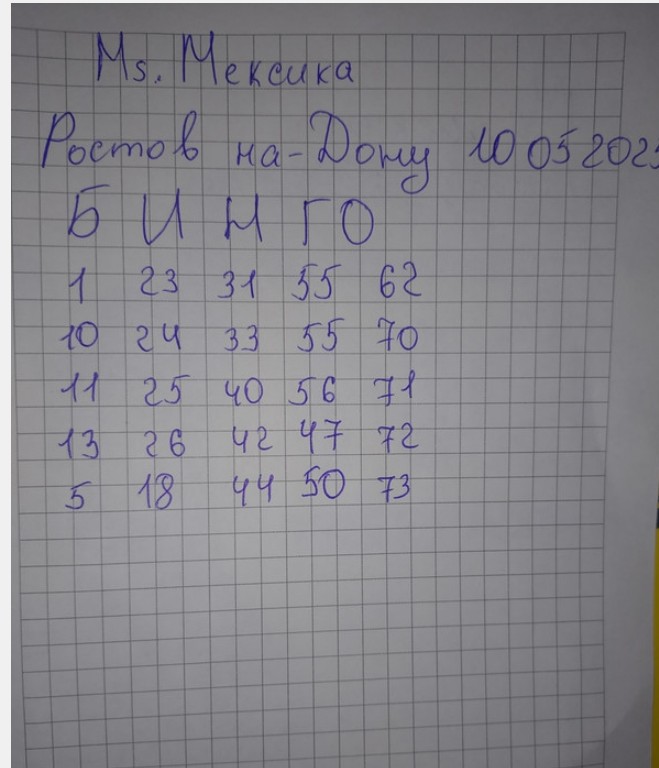 Ms. Мексика
Ростов на-Дону 10 05 2025
Б И Н Г О
1 23 31 55 62
10 24 33 55 70
11 25 40 56 71
13 26 42 47 72
5 18 44 50 73